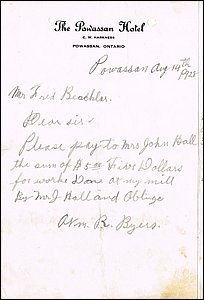 The Powassan Hotel
C. W. HARKNESS
POWASSAN, ONTARIO
Powassan Aug 14th
1928
Mr Fred Beachler.
Dear sir.
Please pay to Mrs John Hall
the sum of $5.00 Five Dollars
for works Done at my mill
By Mr J Hall and Oblige
Wm. R. Byers.